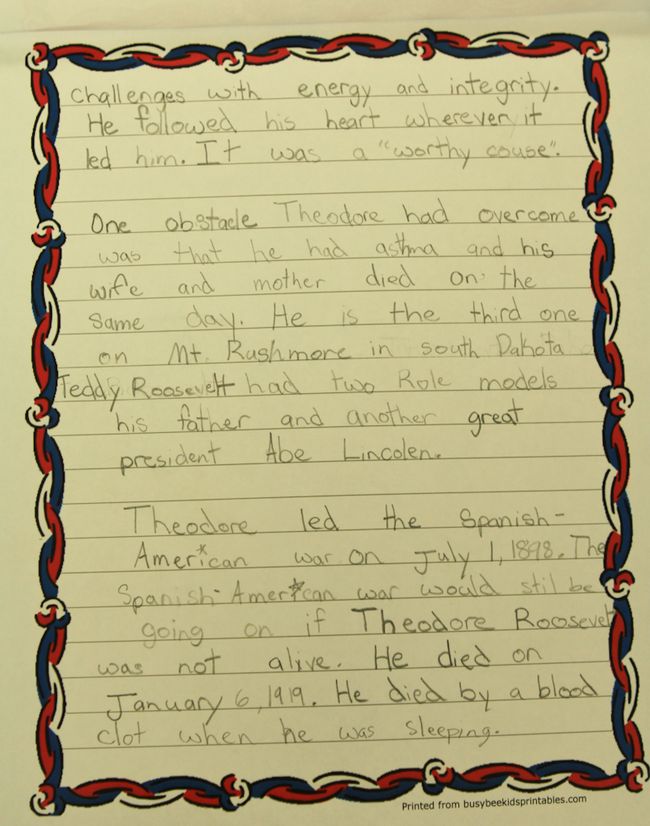 challenges with energy and integrity.
He followed his heart wherever it
led him. It was a "worthy couse".
One obstacle Theodore had overcome
was that he had asthma and his
wife and mother died on the
same day. He is the third one
on Mt. Rushmore in south Dakota
Teddy Roosevelt had two Role models
his father and another great
president Abe Lincolen.
Theodore led the Spanish-
American war on July 1, 1898. The
Spanish-American war would stil be
going on if Theodore Roosevelt
was not alive. He died on
January 6, 1919. He died by a blood
clot when he was sleeping.
Printed from busybeekidsprintables.com